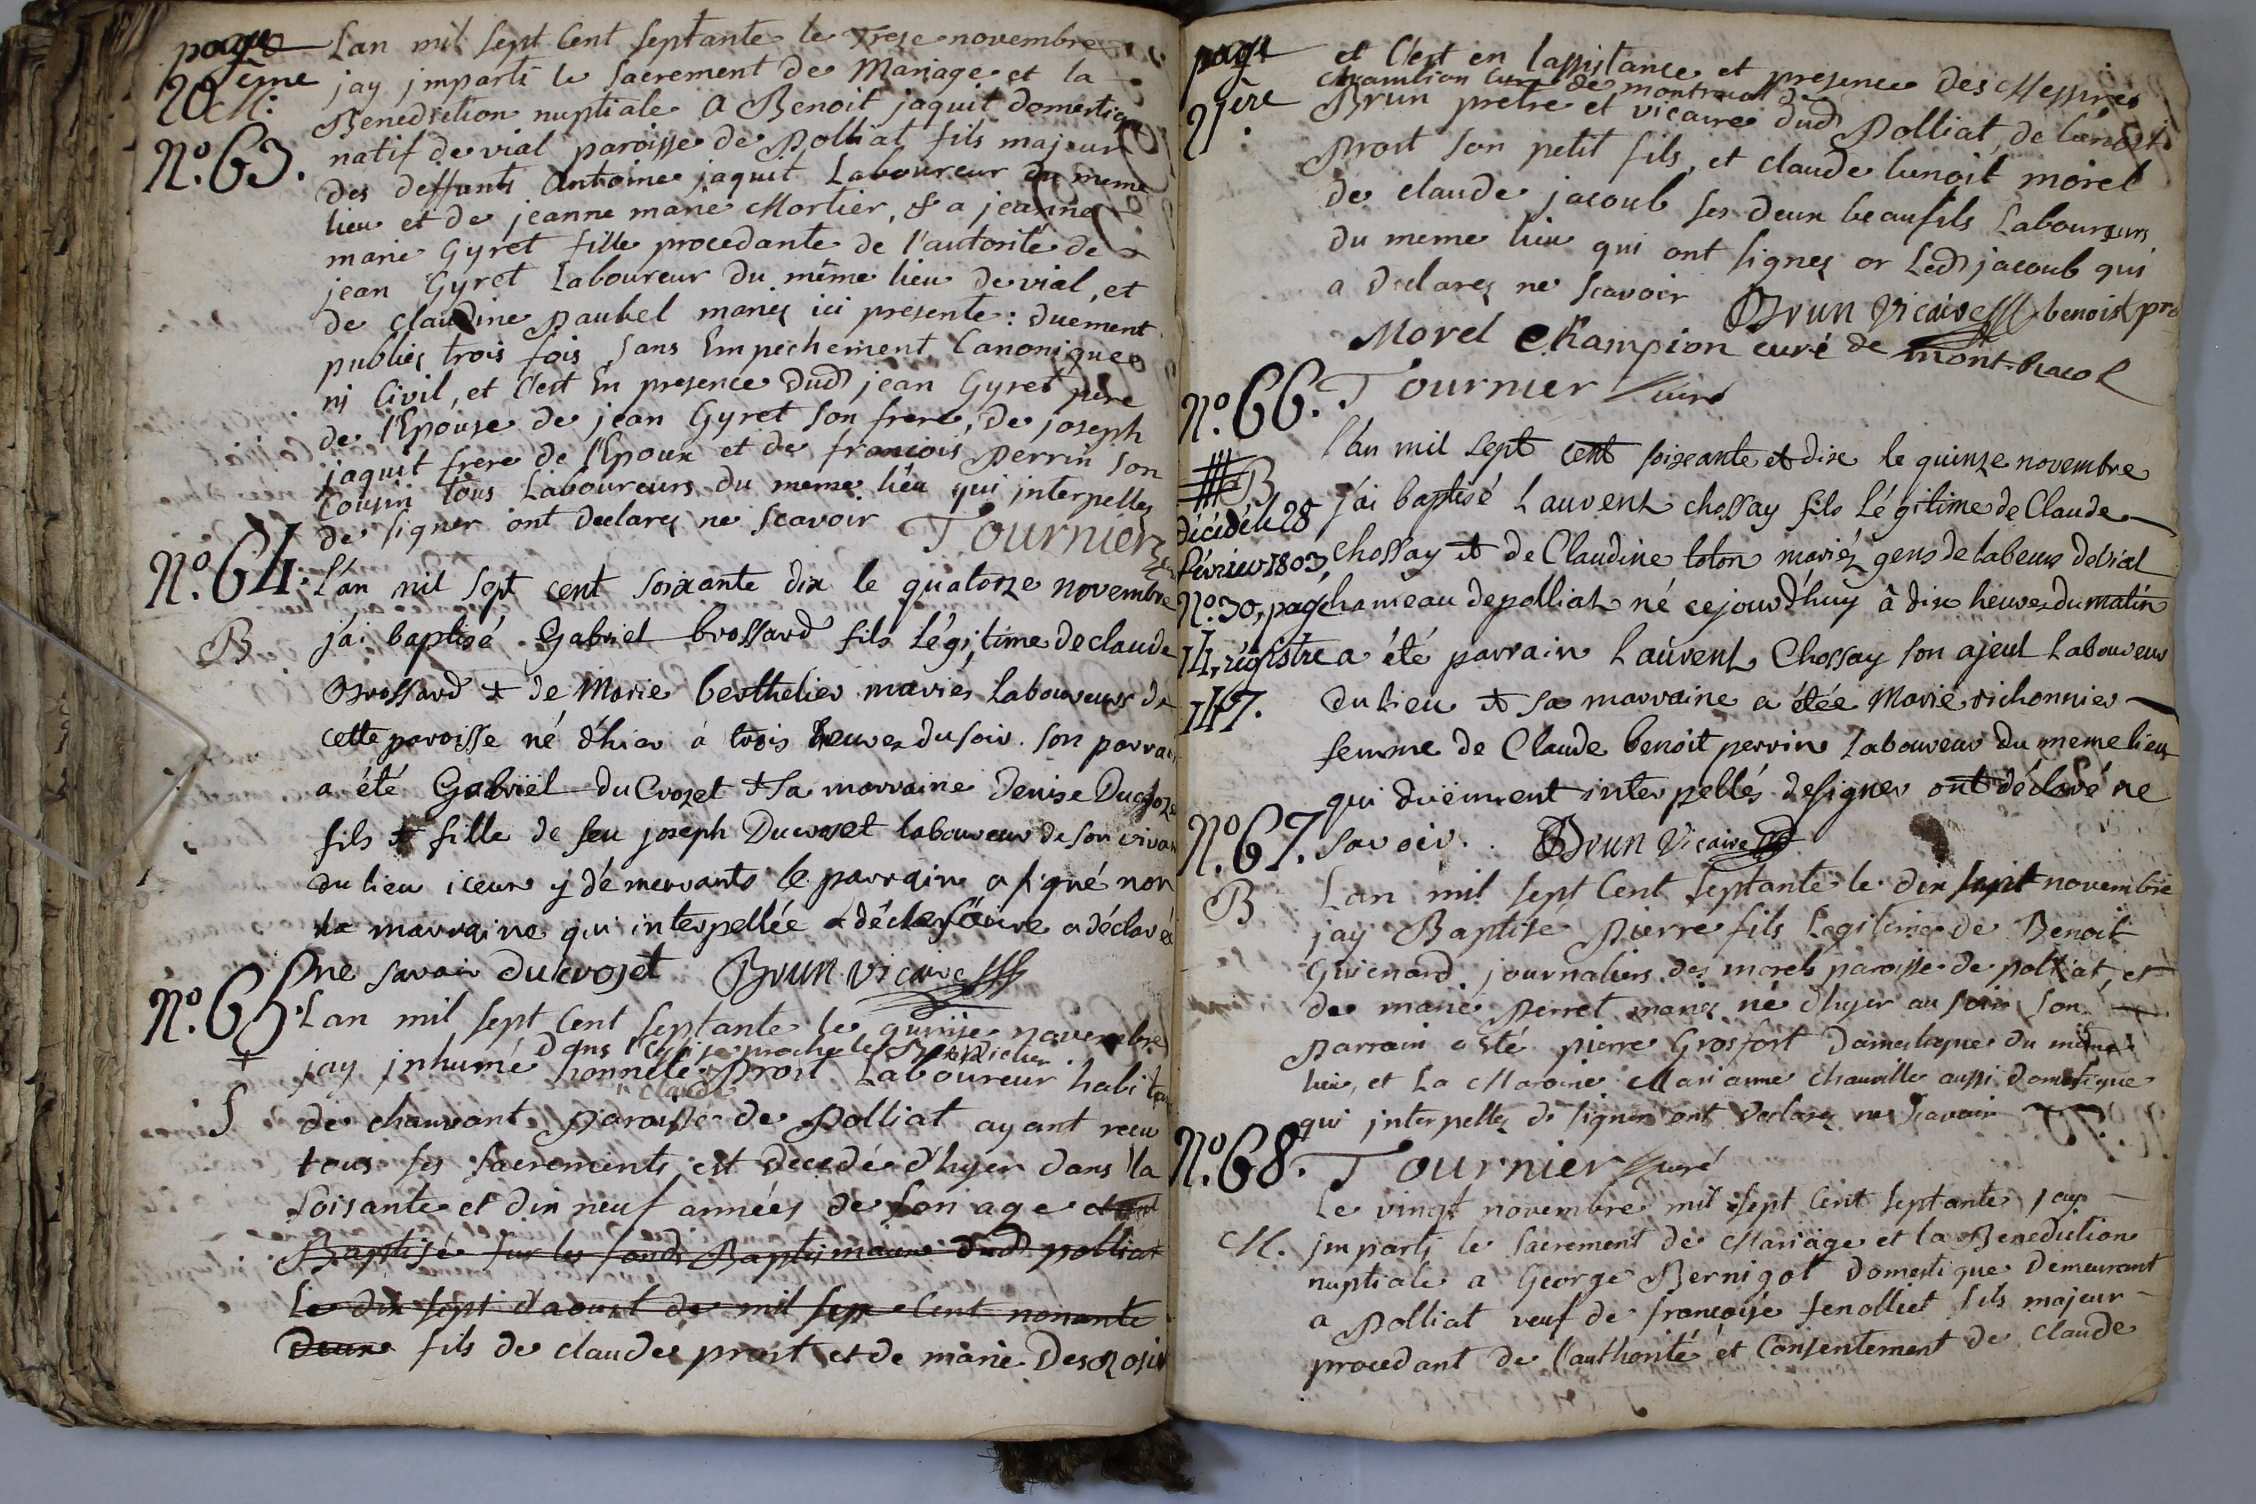 page
20ème
M.
N.° 63.
Lan mil sept Cent septante le treze novembre
jay jmparti le sacrement de Mariage et la
Benediction nuptiale a Benoit jaquit domestiq
natif de vial paroisse de Polliat fils majeur
des deffunts Antoine jaquit Laboureur du meme
lieu et de jeanne marie Mortier, & a jeanne
marie Gyret fille procedante de l'autorité de
jean Gyret Laboureur du même lieu de vial, et
de claudine pauhel mariez ici presente: duement
publiez trois fois sans Empechement Canonique
nj Civil, et C'est En presence dud jean Gyret pere
de l'Epouse de jean Gyret son frere, de joseph
jaquit frere de l'Epoux et de francois perrin son
Cousin tous Laboureurs du meme lieu qui jnterpellez
de signer ont declarez ne scavoir Tournier
N.° 64.
B
L'án mil sept cent soixante dix le quatorze novembre
j'ai baptisé Gabriel brossard fils légitime de claude
Brossard et de Marie berthelier mariés laboureurs de
cette paroisse né d'hier à trois heures du soir. son parrai
a été Gabriël du Crozet et sa marraine Denise Ducroze
fils et fille de feu joseph Ducroset laboureur de son viva
du lieu iceux y démeurants le parrain a signé non
la marraine qui interpellée de le faire a déclaré
ne savoir ducrozet Brun vicaire
N.° 65.
+
S
Lan mil sept Cent septante le quinse novembre
Dans l'Eglise proche le
jay jnhumé honnete Prost Laboureur habita
claude
de chauvant Paroisse de Polliat ayant recu
tous ses sacrements est decedé d'hyer dans la
soisante et dix neuf années de son age
Baptisé sur les fonds Baptismaux dud polliat
le dix sept d'aoust de mil sept Cent nonante
Deux fils de claude prost et de marie Descrosie
page
21ère
et C'est en lassistance et presence des Messires
champion curé de montracol
Brun pretre et vicaire dud Polliat, de benoist
Prost son petit fils, et claude benoit morel
de claude jacoub ses deux beaufils Laboureurs
du meme lieu qui ont signez or Led jacoub qui
a declarez ne scavoir Brun vicaire benoist pro
Morel Champion curé de mont-racol
N.° 66. Tournier curé
B
décédé le 28
février 1803,
N.° 30, page
14, régistre
147.
l'án mil sept cent soixante et dix le quinze novembre
j'ai baptisé Laurent chossay fils légitime de Claude
chossay et de Claudine toton mariéz gens de labeur de Vial
hameau de polliat né ce jourd'huy à dix heures du matin
a été parrain Laurent Chossay son ajeul laboureur
du lieu et sa marraine a étée Marie richonnier
femme de Claude benoit perrin laboureur du meme lieu
qui duëment interpellés de signer ont déclaré ne
N.° 67. savoir. Brun Vicaire
B
Lan mil sept Cent septante le dix sept novembre
jay Baptisé Pierre fils Legitime de Benoit
Guienard journaliers des morels paroisse de polliat, et
de marie Perret mariez né d'hyer au soir son
parrain a eté pierre Grosfort Domestique du même
lieu, et La Maraine Marianne chauville aussi domestique
qui jnterpellez de signer ont declarez ne scavoir
N.° 68. Tournier curé
M.
Le vingt novembre mil sept Cent septante jay
jmparti le sacrement de Mariage et la Benediction
nuptiale a George Bernigot Domestique Demeurant
a Polliat veuf de francoise fenolliet fils majeur
procedant de l'authorité et Consentement de claude